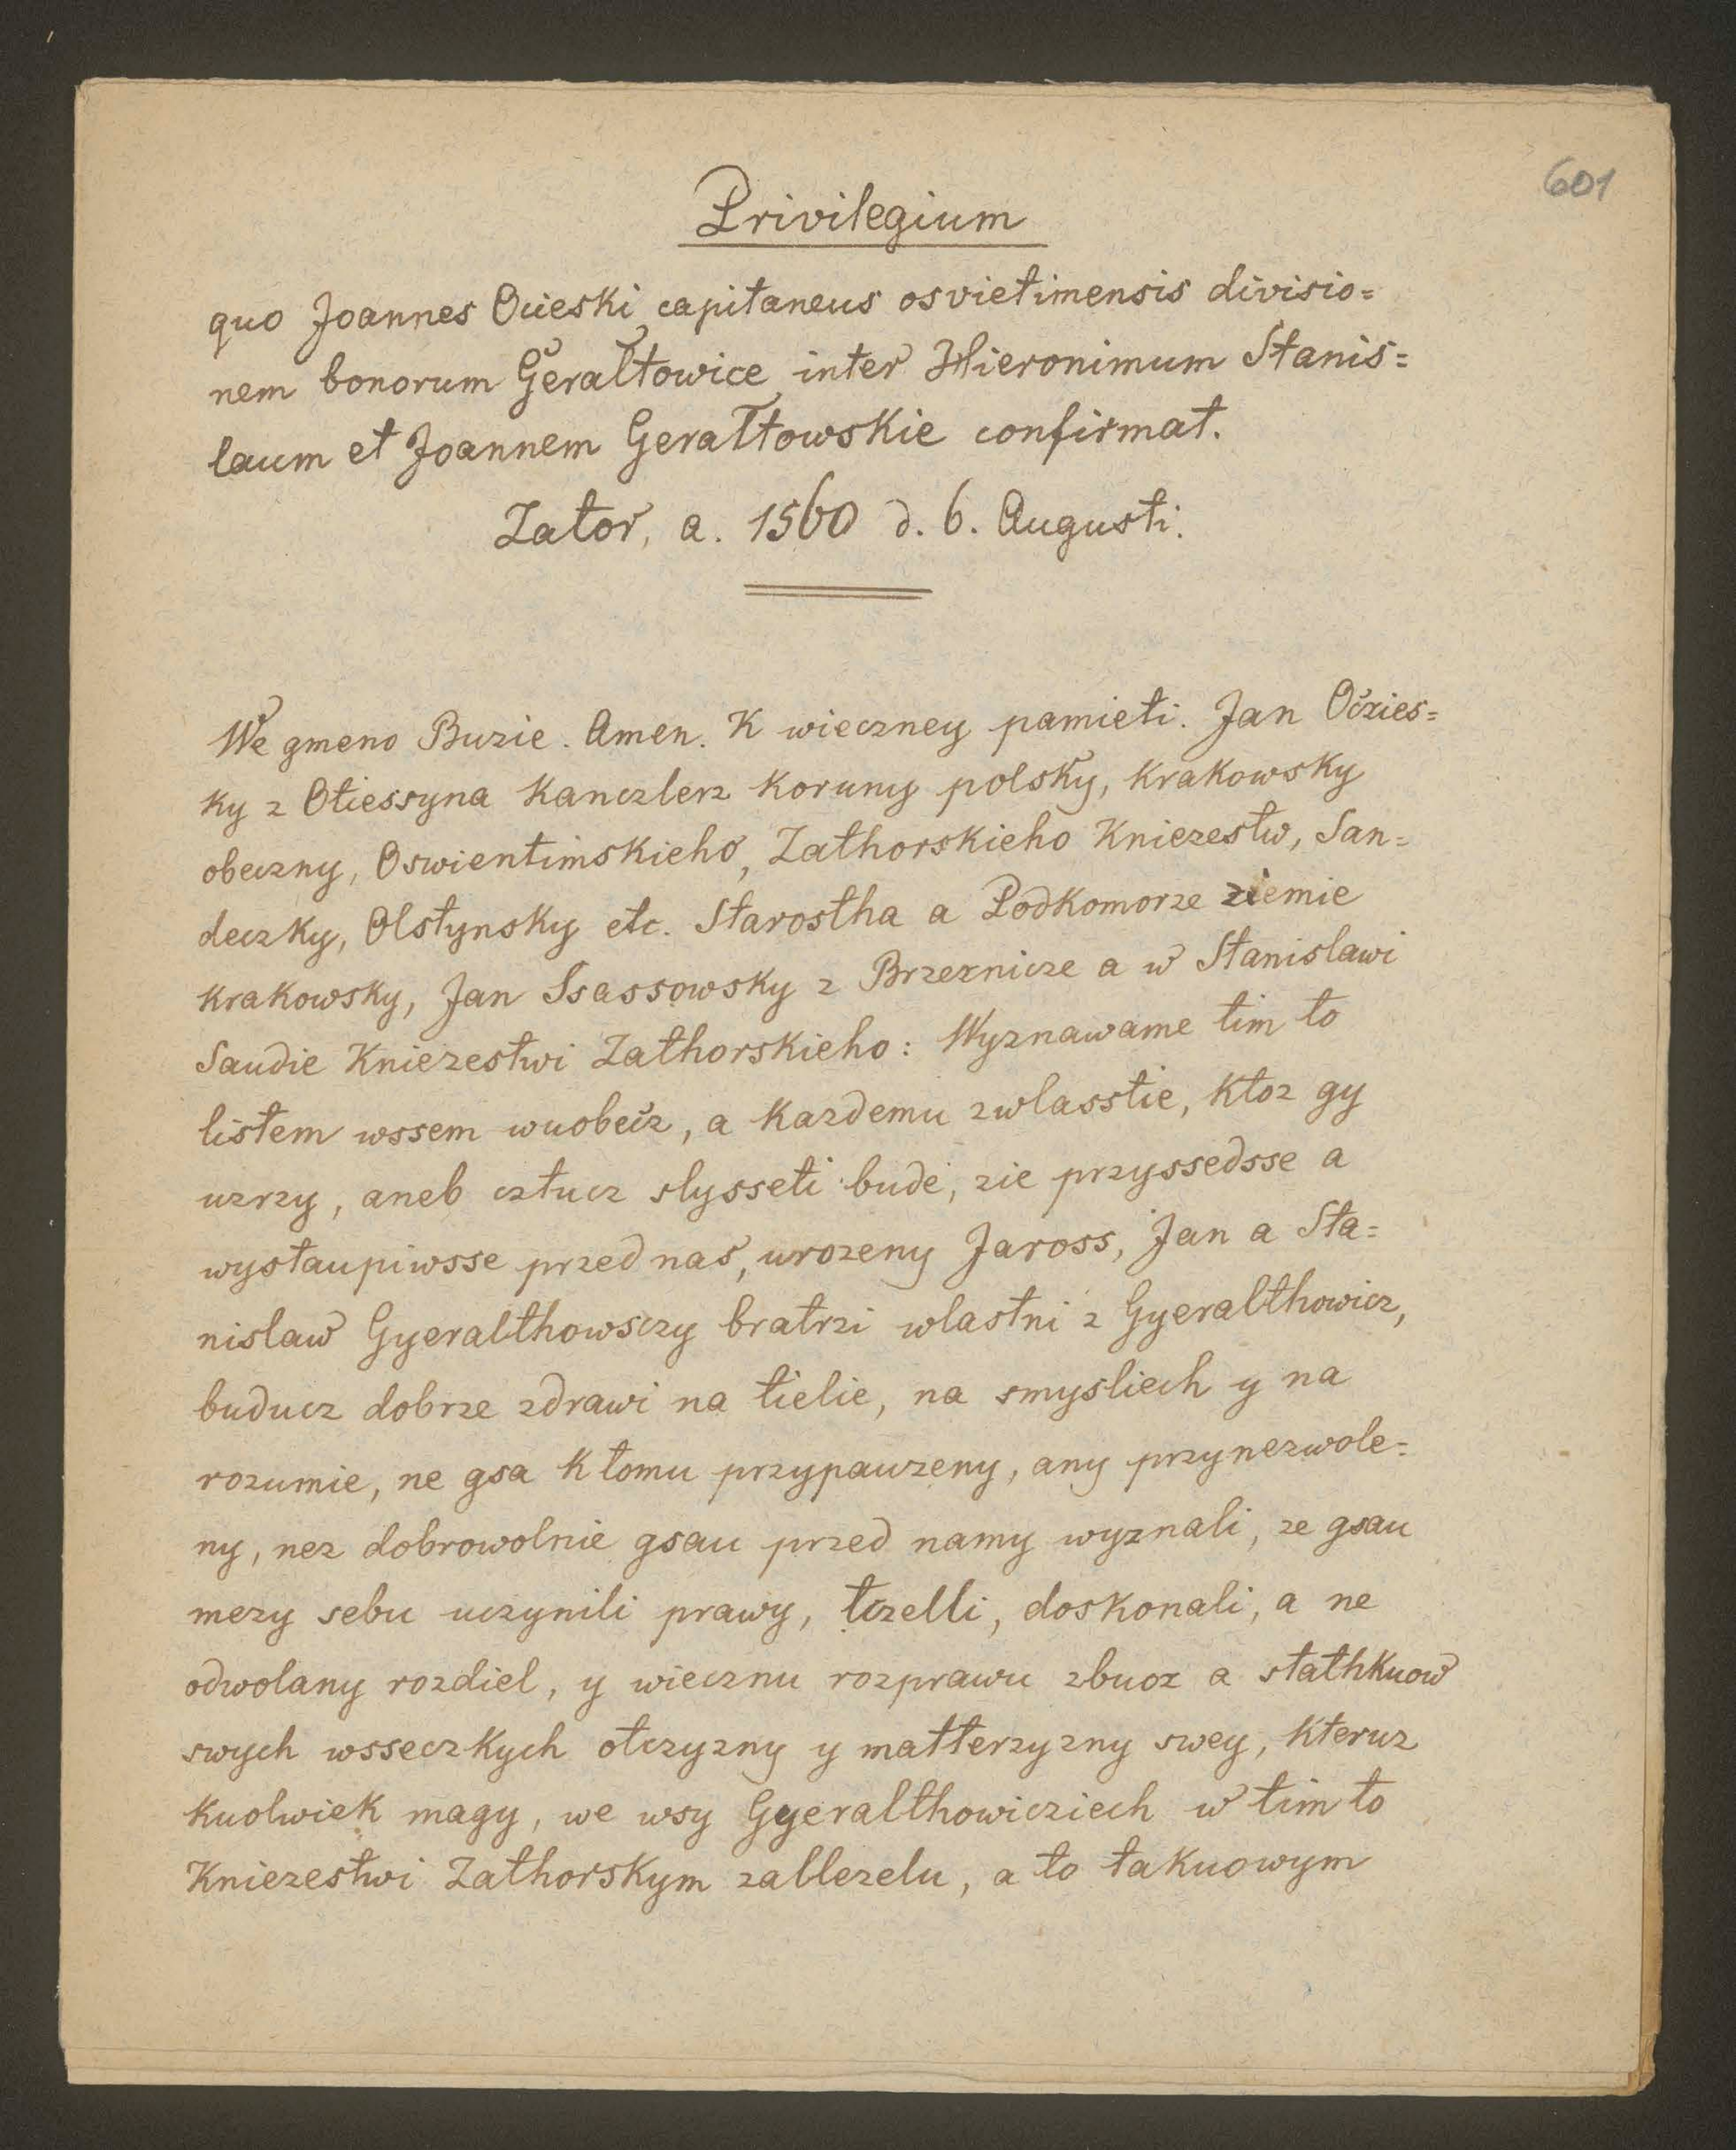 601
Privilegium
quo Joannes Ocieski capitaneus osvietimensis divisio=
nem bonorum Gerałtowice inter Hieronimum Stanis=
laum et Joannem Gerałtowskie confirmat.
Zator, a. 1560 d. 6. Augusti.
We gmeno Buzie. Amen. K wieczney pamieti. Jan Oczies=
ky z Otiessyna Kanczlerz Koruny polsky, Krakowsky
obeczny, Oswientimskieho, Zathorskieho Kniezestw, San=
deczky, Olstynsky etc. Starostha a Podkomorze ziemie
Krakowsky, Jan Ssassowsky z Brzeznicze a w Stanislawi
Saudie Kniezestwi Zathorskieho: Wyznawame tim to
listem wssem wuobecz, a Kazdemu zwlasstie, Ktoz gy
uzrzy, aneb cztucz slysseti bude, zie przyssedsse a
wystaupiwsse przed nas, urozeny Jaross, Jan a Sta=
nislaw Gyeralthowsczy bratrzi wlastni z Gyeralthowicz,
buducz dobrze zdrawi na tielie, na smysliech y na
rozumie, ne gsa K tomu przypauzeny, any przynezwole=
ny, nez dobrowolnie gsau przed namy wyznali, ze gsau
mezy sebu uczynili prawy, tczelli, doskonali, a ne
odwolany rozdiel, y wiecznu rozprawu zbuoz a stathkuow
swych wsseczkych otczyzny y matterzyzny swey, Kteruz
Kuolwiek magy, we wsy Gyeralthowicziech w tim to
Kniezestwi Zathorskym zallezelu, a to takuowym